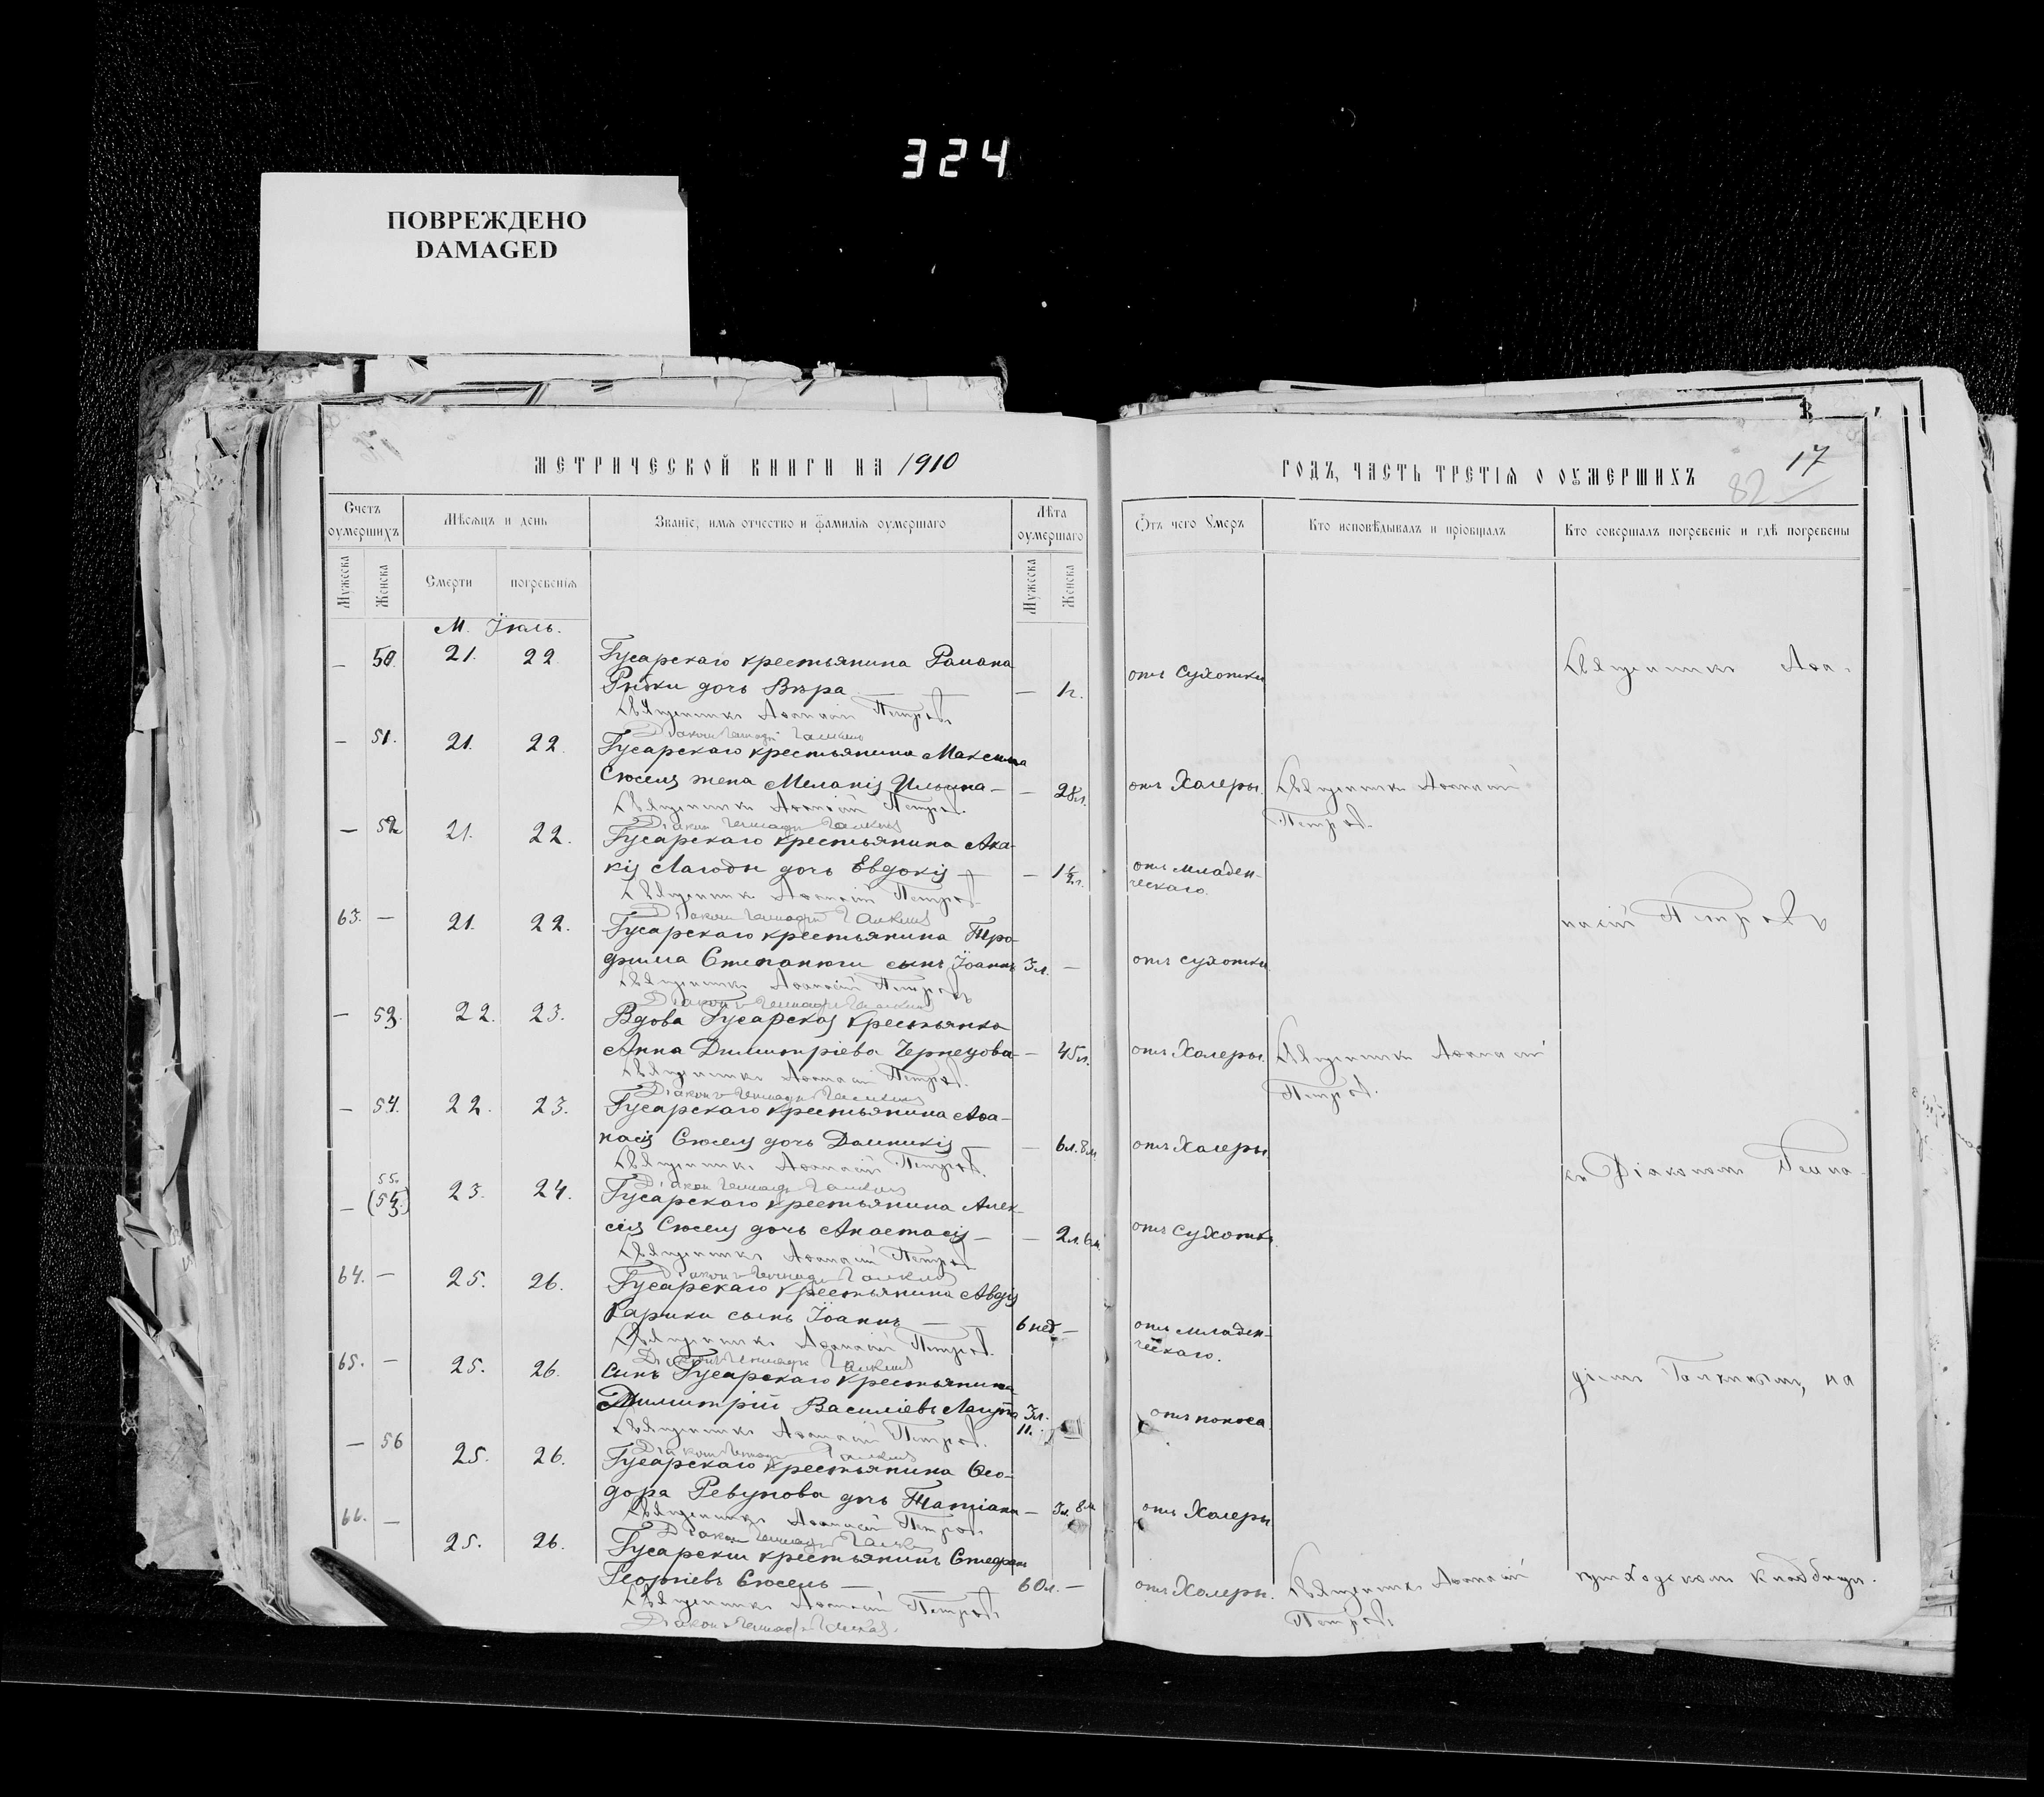 324
ПОВРЕЖДЕНО
DAMAGED
МЕТРИЧЕСКОЙ КНИГИ НА 1910
Счетъ оумершихъ
Мѣсяцъ и день
Званіе, имя отчество и фамилія оумершаго
Лѣта оумершаго
Мужеска
Женска
Смерти
погребенія
Мужеска
Женска
М. Іюль.
— 50. 21. 22 Гусарскаго крестьянина Романа
дочь Вѣра — — 1г.
Священникъ Аѳанасій Петровъ
Діаконъ Геннадій Галкинъ
— 51. 21. 22. Гусарскаго крестьянина Максима
Сюселя жена Меланія Ильина — — 28л.
Священникъ Аѳанасій Петровъ.
Діаконъ Геннадій Галкинъ
— 52 21. 22. Гусарскаго крестьянина Ака-
кія Лагоды дочь Евдокія — — 1½г.
Священникъ Аѳанасій Петровъ
Діаконъ Геннадій Галкинъ
63. — 21. 22. Гусарскаго крестьянина Тро-
фима Степанюги сынъ Іоаннъ 3л. —
Священникъ Аѳанасій Петровъ
Діаконъ Геннадій Галкинъ
— 53. 22. 23. Вдова Гусарская крестьянка
Анна Димитріева Чернецова — 45л.
Священникъ Аѳанасій Петровъ.
Діаконъ Геннадій Галкинъ
— 54. 22. 23. Гусарскаго крестьянина Аѳа-
насія Сюселя дочь Домникія — — 6л.8м.
Священникъ Аѳанасій Петровъ.
Діаконъ Геннадій Галкинъ
55.
— 23. 24. Гусарскаго крестьянина Алек-
сія Сюселя дочь Анастасія — — 2л.6м.
Священникъ Аѳанасій Петровъ
Діаконъ Геннадій Галкинъ
64. — 25. 26. Гусарскаго крестьянина Авдія
Карики сынъ Іоаннъ — 6 нед —
Священникъ Аѳанасій Петровъ.
Діаконъ Геннадій Галкинъ
65. — 25. 26. Сынъ Гусарскаго крестьянина
Димитрій Василіевъ 3л.
11.
Священникъ Аѳанасій Петровъ.
Діаконъ Геннадій Галкинъ
— 56 25. 26. Гусарскаго крестьянина Ѳео-
дора Ревунова дочь Татіана — 3л. 8м
Священникъ Аѳанасій Петровъ
Діаконъ Геннадій Галкинъ
66. — 25. 26. Гусарскій крестьянинъ
Георгіевъ Сюсель — — 60л. —
Священникъ Аѳанасій Петровъ
Діаконъ Геннадій Галкинъ.
17
82
ГОДЪ, ЧАСТЬ ТРЕТІЯ О ОУМЕРШИХЪ
Ѿтъ чего Умеръ
Кто исповѣдывалъ и пріобщалъ
Кто совершалъ погребеніе и гдѣ погребены
отъ сухотки
Священникъ Аѳа-
отъ Холеры. Священникъ Аѳанасій
Петровъ.
отъ младен-
ческаго.
насій Петровъ
отъ сухотки
отъ Холеры. Священникъ Аѳанасій
Петровъ.
отъ Холеры
съ Діакономъ Генна-
отъ Сухотки
отъ младен-
ческаго.
діемъ Галкинымъ, на
отъ поноса
отъ Холеры
отъ Холеры. Священникъ Аѳанасій
Петровъ
приходскомъ кладбищѣ.